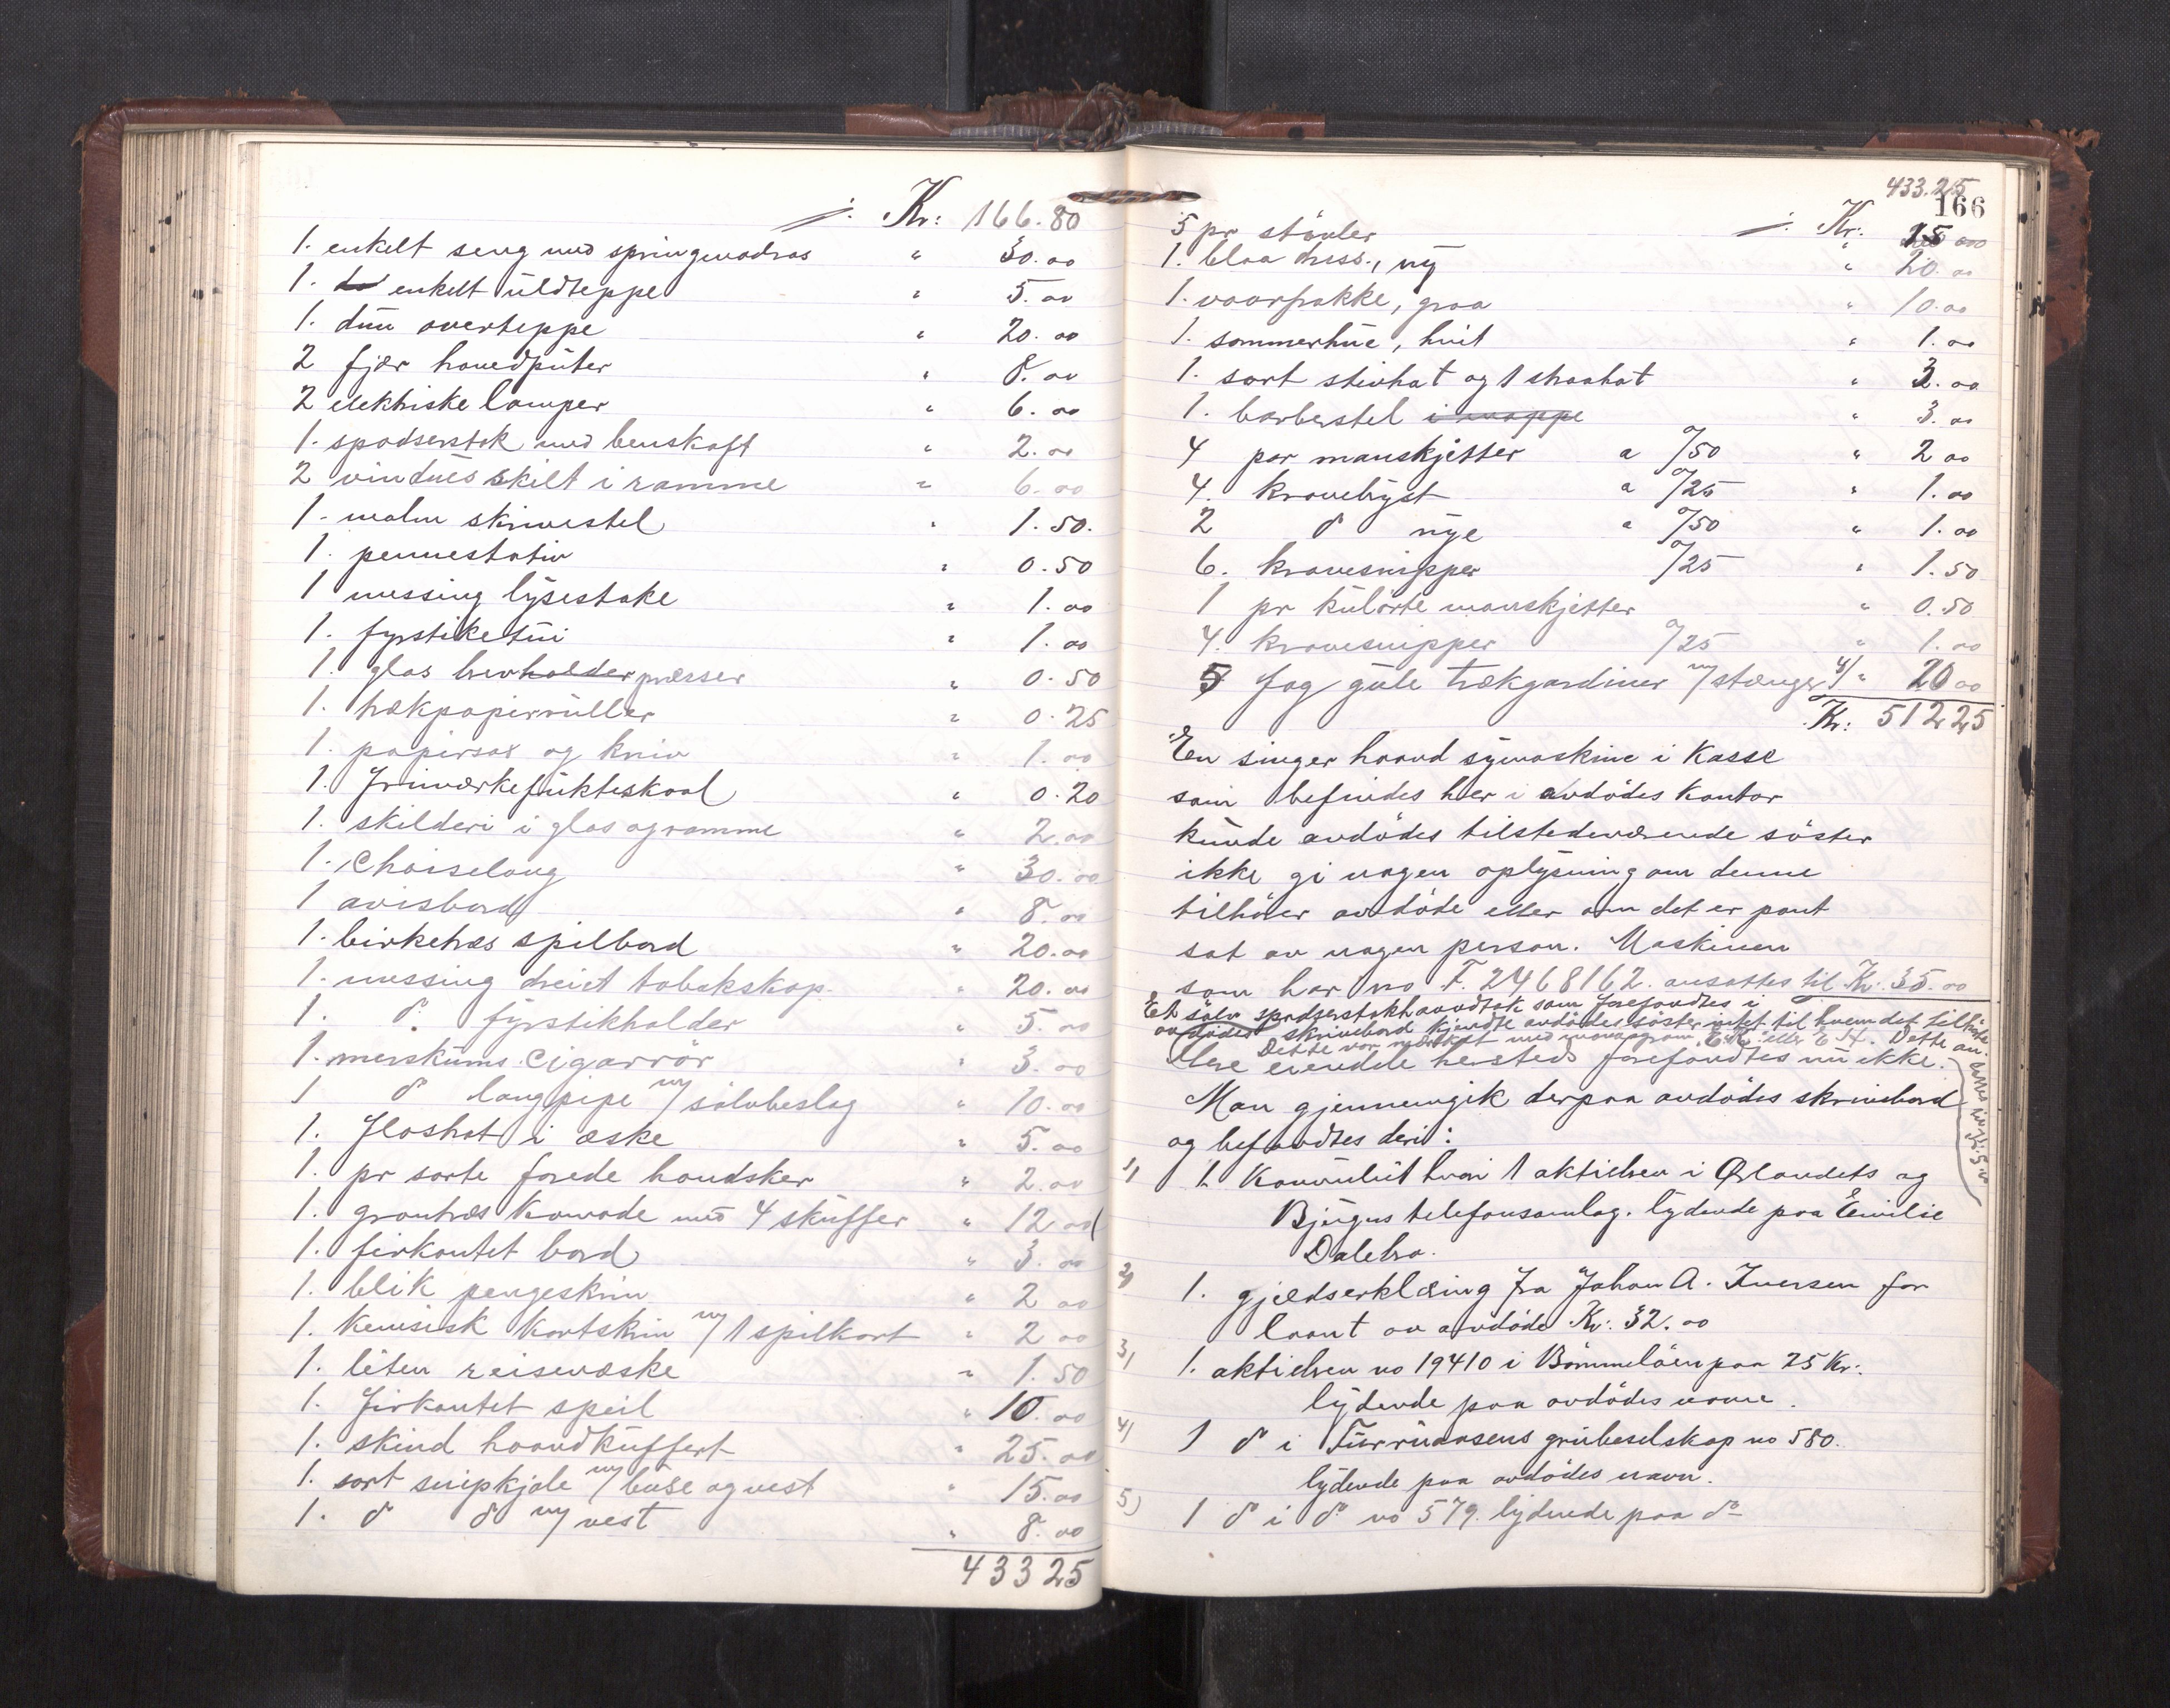 /. Kr: 166.80
1. enkelt seng med springmadras " 30.00
1. enkelt uldteppe " 5.00
1. dun overteppe " 20.00
2 fjær hovedputer " 8.00
2 elektriske lamper " 6.00
1. spadserstok med benskaft " 2.00
2 vindues skilt i ramme " 6.00
1. malm skrivestel " 1.50.
1. pennestativ " 0.50
1 messing lysestake " 1.00
1. fyrstiketui " 1.00
1. glas brevholder presser " 0.50
1. trækpapirruller " 0.25
1. papirsax og kniv " 1.00
1. frimærkefukteskaal " 0.20
1. skilderi i glas og ramme " 2.00
1. Chaiselong " 30.00
1 avisbord " 8.00
1. birketræs spilbord " 20.00
1. messing dreiet tobakskop " 20.00
1. do fyrstikholder " 5.00
1. merskums Cigarrör " 3.00
1 do langpipe m/ sölvbeslag " 10.00
1. floshat i æske " 5.00
1. pr sorte forede handsker " 2.00
1. grantræs komode med 4 skuffer " 12.00
1. firkantet bord " 3.00
1. blik pengeskrin " 2.00
1. kinesisk kortskrin m/ 1 spilkort " 2.00
1. liten reisevæske " 1.50
1. firkantet speil " 10.00
1. skind haandkuffert " 25.00
1. sort snipkjole m/ buse og vest " 15.00
1. do do m/ vest " 8.00
433 25
433.25
166
/. Kr:
5 pr stövler 15 00
1. blaa dress, ny " 20.00
1. vaarfrakke, graa " 10.00
1. sommerhue, hvit " 1.00
1. sort stivhat og 1 straahat " 3.00
1. barberstel i mappe " 3.00
4 par manskjetter a 0/50 " 2 00
4. kravebryst a 0/25 " 1.00
2 do nye a 0/50 " 1.00
6. kravesnipper 0/25 " 1.50
1 pr kulörte manskjetter " 0.50
4. kravesnipper 0/25 " 1.00
5 fag gule trækgardiner m/ stænger 4/ " 20 00
Kr: 512 25
En singer haand symaskine i Kasse
som befindes her i avdödes kontor
kunde avdödes tilstedeværende söster
ikke gi nogen oplysning om denne
tilhörer avdöde eller om det er pant
sat av nogen person. Maskinen
som har no F. 2468162. ansattes til Kr. 35.00
Et sölv spadserstokhaandtak som forefandtes i
avdödes skrivebord kjendte avdödes söster intet til hvem det tilhörte
Dette var mærket med monogram eller Dette an-
Flere eiendele hersteds forefandtes nu ikke.
Man gjennemgik derpaa avdödes skrivebord
og befandtes deri:
1) 1 Konvolut hvori 1 aktiebrev i Ørlandets og
Bjugns telefonsamlag. lydende paa Emilie
Dalebra.
2) 1. gjældserklæring fra Johan A. Iversen for
laant av avdöde Kr. 32.00
3) 1. aktiebrev no 19410 i Bömmelöen paa 25 Kr.
lydende paa avdödes navn.
4) 1 do i grubeselskap no 580.
lydende paa avdödes navn.
5) 1 do i do no 579. lydende paa do